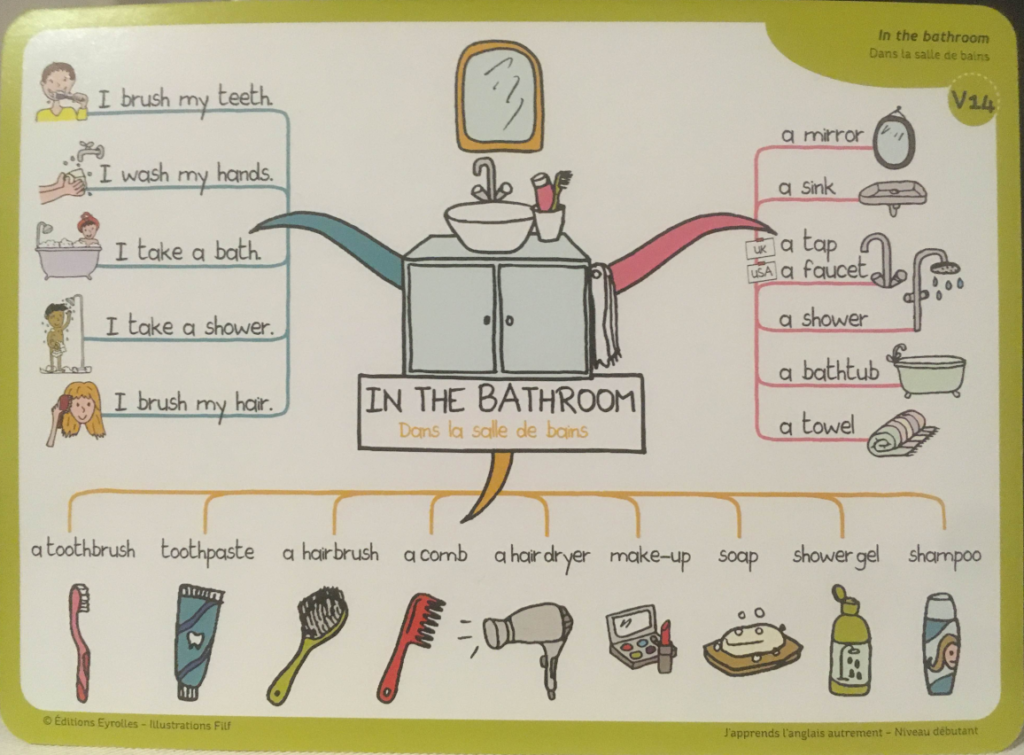 In the bathroom
Dans la salle de bains
V14
I brush my teeth.
I wash my hands.
I take a bath.
I take a shower.
I brush my hair.
a mirror
a sink
UK
a tap
USA
a faucet
a shower
a bathtub
a towel
IN THE BATHROOM
Dans la salle de bains
a toothbrush
toothpaste
a hairbrush
a comb
a hair dryer
make-up
soap
shower gel
shampoo
© Éditions Eyrolles – Illustrations Filf
J'apprends l'anglais autrement – Niveau débutant